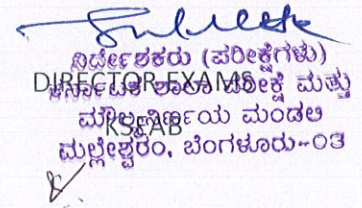 ನಿರ್ದೇಶಕರು (ಪರೀಕ್ಷೆಗಳು)
DIRECTOR EXAMS
ಕರ್ನಾಟಕ ಶಾಲಾ ಪರೀಕ್ಷೆ ಮತ್ತು
ಮೌಲ್ಯನಿರ್ಣಯ ಮಂಡಲಿ
KSEAB
ಮಲ್ಲೇಶ್ವರಂ, ಬೆಂಗಳೂರು-೦೩